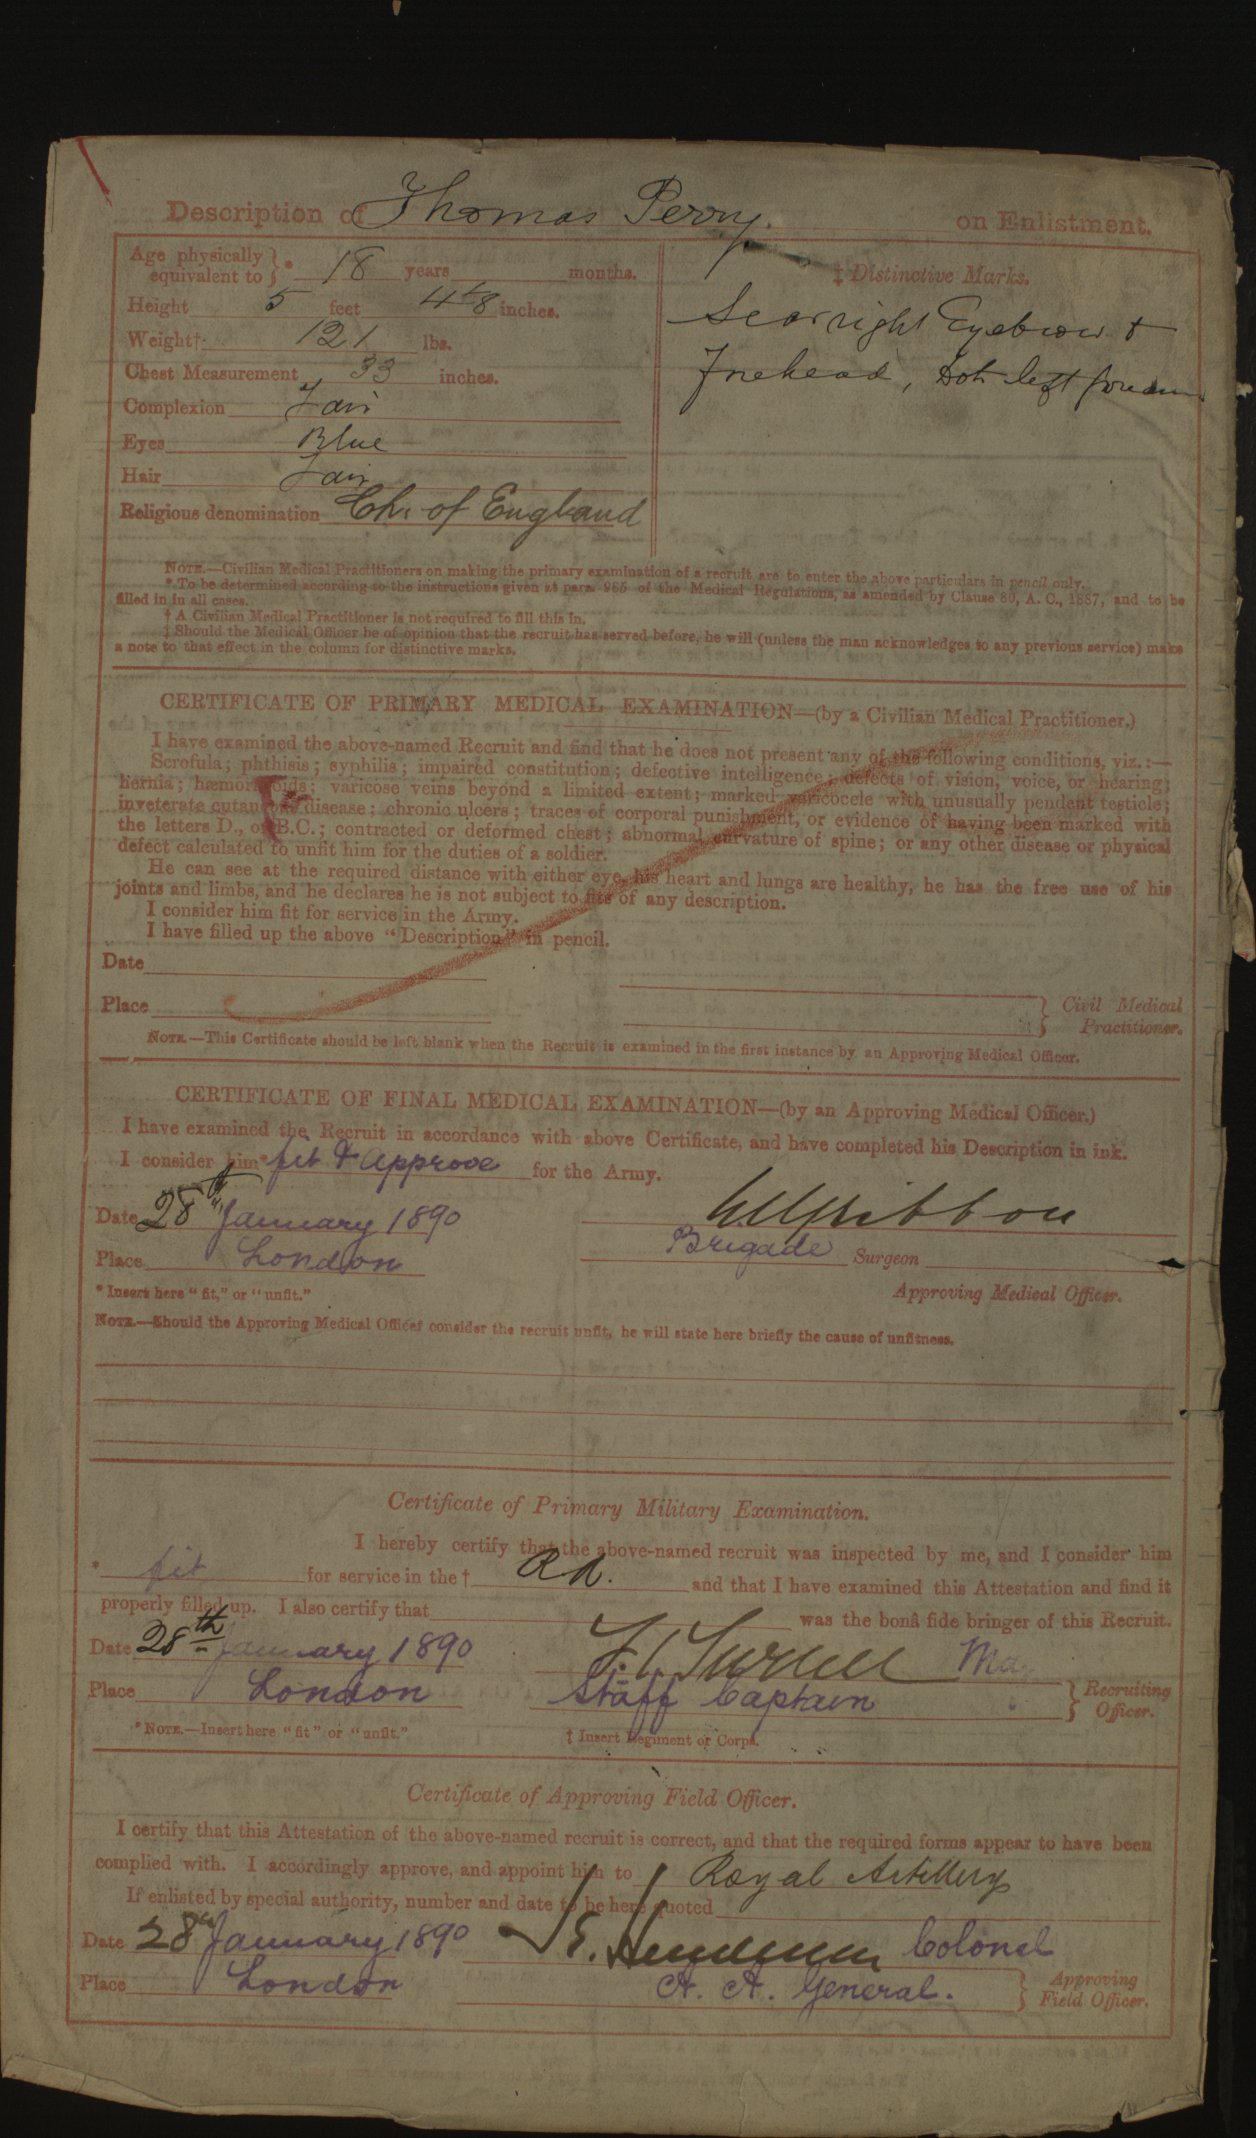 Description of Thomas Perry. on Enlistment.
Age physically equivalent to } * 18 years months.
Height 5 feet 4 1/8 inches.
Weight† 121 lbs.
Chest Measurement 33 inches.
Complexion Fair
Eyes Blue
Hair Fair
Religious denomination Ch. of England
‡ Distinctive Marks.
Scar right Eyebrow &
Forehead, Dot left forearm
NOTE.—Civilian Medical Practitioners on making the primary examination of a recruit are to enter the above particulars in pencil only.
* To be determined according to the instructions given at para. 965 of the Medical Regulations, as amended by Clause 80, A. C., 1887, and to be
filled in in all cases.
† A Civilian Medical Practitioner is not required to fill this in.
‡ Should the Medical Officer be of opinion that the recruit has served before, he will (unless the man acknowledges to any previous service) make
a note to that effect in the column for distinctive marks.
CERTIFICATE OF PRIMARY MEDICAL EXAMINATION—(by a Civilian Medical Practitioner.)
I have examined the above-named Recruit and find that he does not present any of the following conditions, viz.:—
Scrofula; phthisis; syphilis; impaired constitution; defective intelligence; defects of vision, voice, or hearing;
hernia; hæmorrhoids; varicose veins beyond a limited extent; marked varicocele with unusually pendent testicle;
inveterate cutaneous disease; chronic ulcers; traces of corporal punishment, or evidence of having been marked with
the letters D., or B.C.; contracted or deformed chest; abnormal curvature of spine; or any other disease or physical
defect calculated to unfit him for the duties of a soldier.
He can see at the required distance with either eye, his heart and lungs are healthy, he has the free use of his
joints and limbs, and he declares he is not subject to fits of any description.
I consider him fit for service in the Army.
I have filled up the above "Description" in pencil.
Date
Place
} Civil Medical Practitioner.
NOTE.—This Certificate should be left blank when the Recruit is examined in the first instance by an Approving Medical Officer.
CERTIFICATE OF FINAL MEDICAL EXAMINATION—(by an Approving Medical Officer.)
I have examined the Recruit in accordance with above Certificate, and have completed his Description in ink.
I consider him* fit & approve for the Army.
Date 28th January 1890
Place London Brigade Surgeon
* Insert here "fit," or "unfit." Approving Medical Officer.
NOTE.—Should the Approving Medical Officer consider the recruit unfit, he will state here briefly the cause of unfitness.
Certificate of Primary Military Examination.
I hereby certify that the above-named recruit was inspected by me, and I consider him
* fit for service in the † RA. and that I have examined this Attestation and find it
properly filled up. I also certify that was the bonâ fide bringer of this Recruit.
Date 28th January 1890
Place London Staff Captain } Recruiting Officer.
* NOTE.—Insert here "fit" or "unfit." † Insert Regiment or Corps.
Certificate of Approving Field Officer.
I certify that this Attestation of the above-named recruit is correct, and that the required forms appear to have been
complied with. I accordingly approve, and appoint him to Royal Artillery
If enlisted by special authority, number and date to be here quoted
Date 28th January 1890 Colonel
Place London A. A. General. } Approving Field Officer.